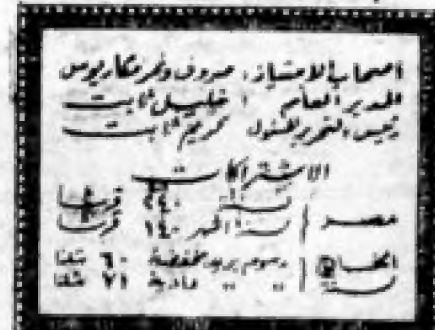 أصحاب الامتياز: صروف ونمر مكاريوس
المدير العام : خليل ثابت
رئيس التحرير المسئول كريم ثابت
الاشتراكات
مصر { لسنة ٢٤٠ قرشا
لستة اشهر ١٤٠ قرشا
الخارج { رسوم بريد مخفضة ٦٠ شلنا
لسنة } " " عادية ٧١ شلنا